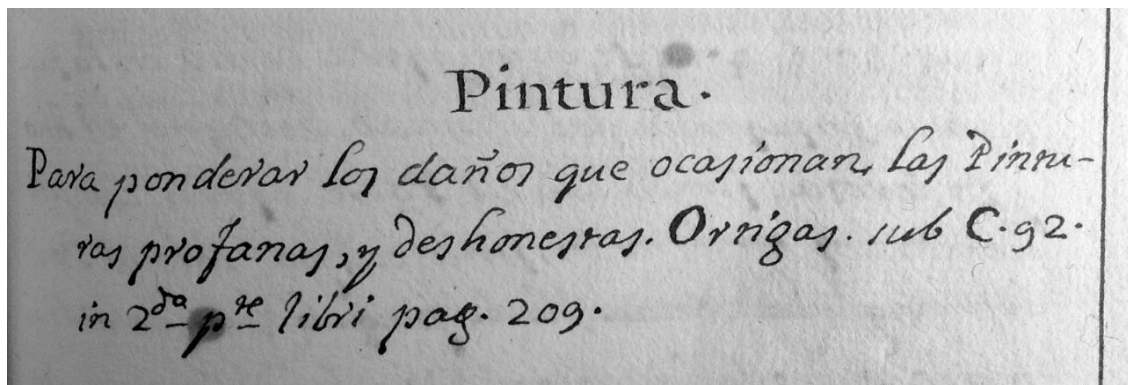 Pintura.
Para ponderar los daños que ocasionan, las Pintu-
ras profanas, y deshonestas. Ortigas. sub C. 92.
in 2da pte libri pag. 209.